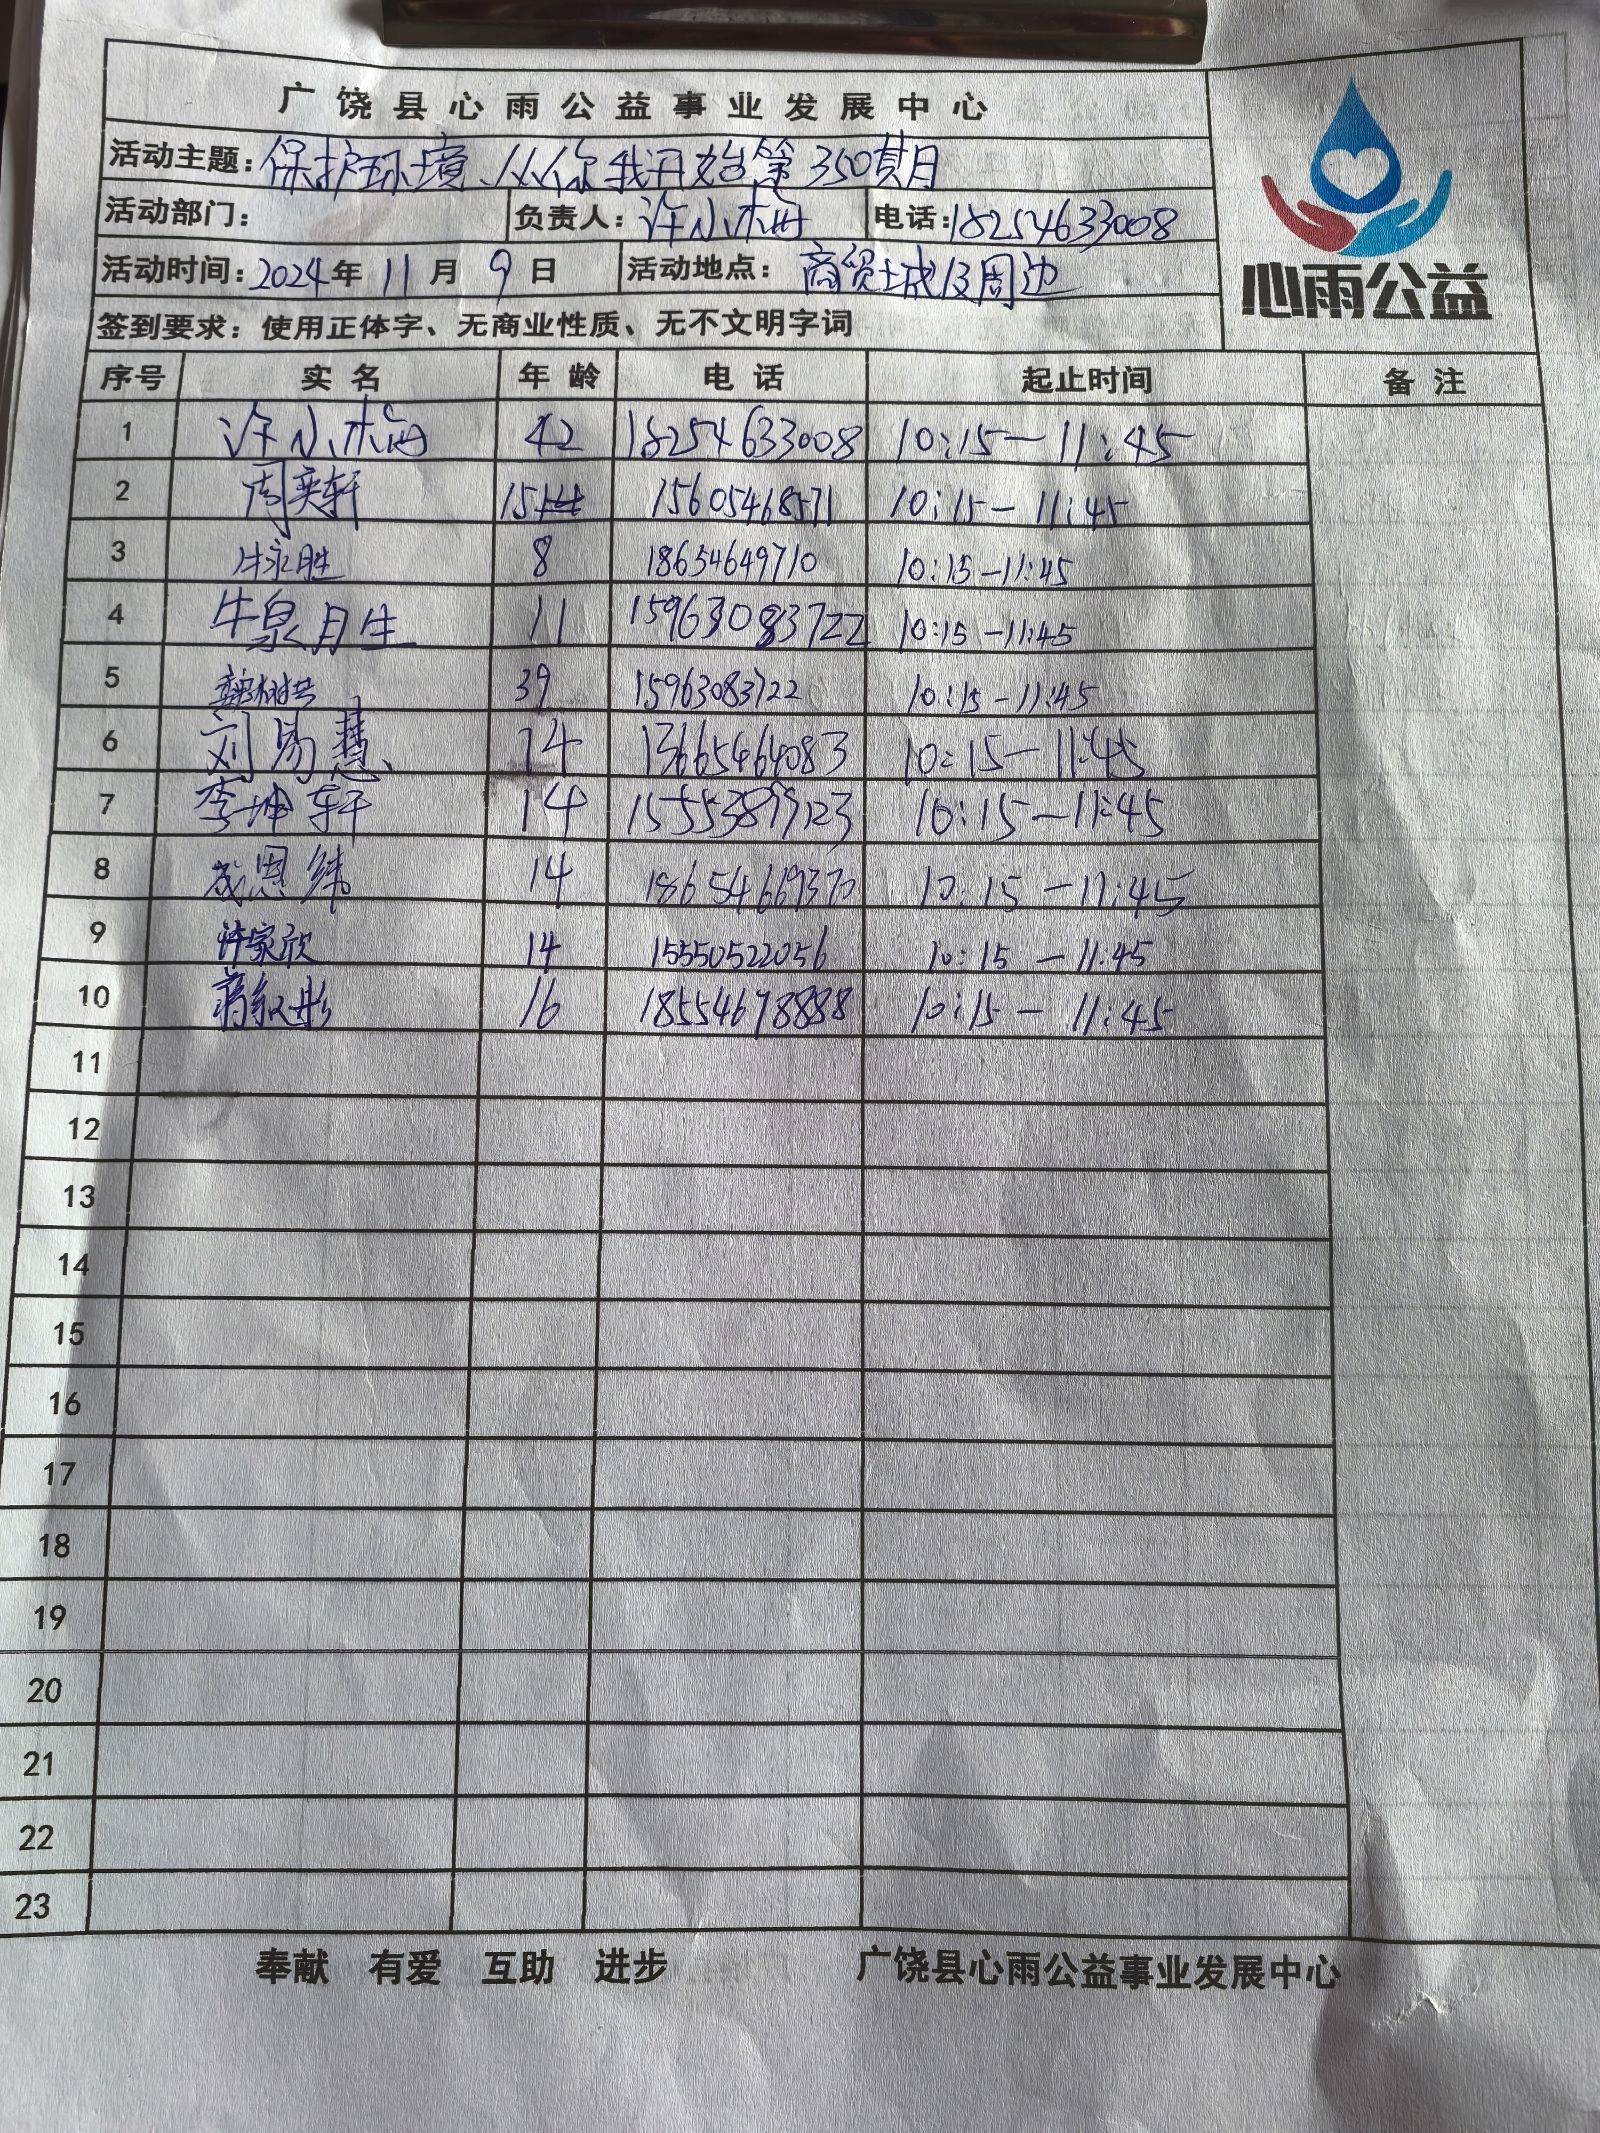 广饶县心雨公益事业发展中心
心雨公益
活动主题：保护环境、从你我开始第350期
活动部门： 负责人：许小梅 电话：18254633008
活动时间：2024年 11月 9日 活动地点：商贸城及周边
签到要求：使用正体字、无商业性质、无不文明字词
序号 实名 年龄 电话 起止时间 备注
1 许小梅 42 18254633008 10:15—11:45
2 周奕轩 15 15605468571 10:15—11:45
3 牛泳胜 8 18654649710 10:15—11:45
4 牛泉胜 11 15963083722 10:15—11:45
5 39 15963083722 10:15—11:45
6 刘易慧 14 13665464083 10:15—11:45
7 李坤轩 14 15553899123 10:15—11:45
8 成恩纬 14 18654669370 10:15—11:45
9 许家欣 14 15550522056 10:15—11:45
10 蒋叙彤 16 18554678888 10:15—11:45
11
12
13
14
15
16
17
18
19
20
21
22
23
奉献 有爱 互助 进步 广饶县心雨公益事业发展中心